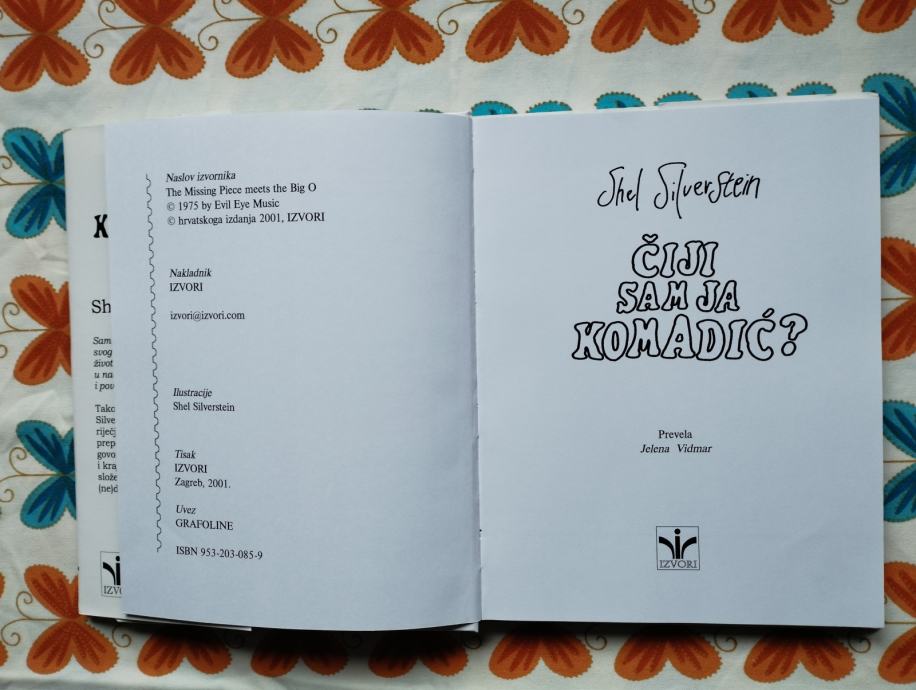 Sam
svog
život
u na
i pov
Tako
Silve
riječj
prep
govo
i kraj
slože
(ne)d
IZVO
Naslov izvornika
The Missing Piece meets the Big O
© 1975 by Evil Eye Music
© hrvatskoga izdanja 2001, IZVORI
Nakladnik
IZVORI
izvori@izvori.com
Ilustracije
Shel Silverstein
Tisak
IZVORI
Zagreb, 2001.
Uvez
GRAFOLINE
ISBN 953-203-085-9
Shel Silverstein
ČIJI
SAM JA
KOMADIĆ?
Prevela
Jelena Vidmar
IZVORI